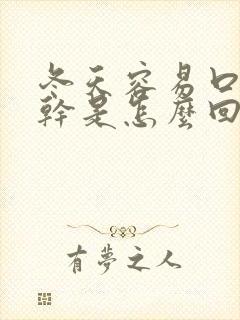 冬天容易口
幹是怎麼回
有夢之人